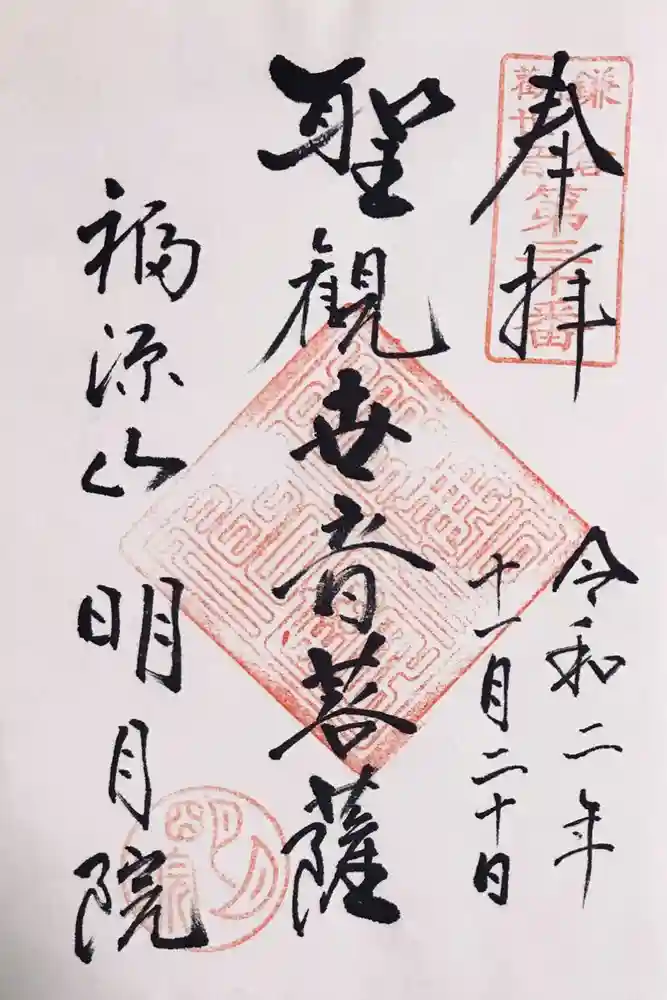 奉拝
第三十番
令和二年
十一月二十日
聖観世音菩薩
福源山 明月院